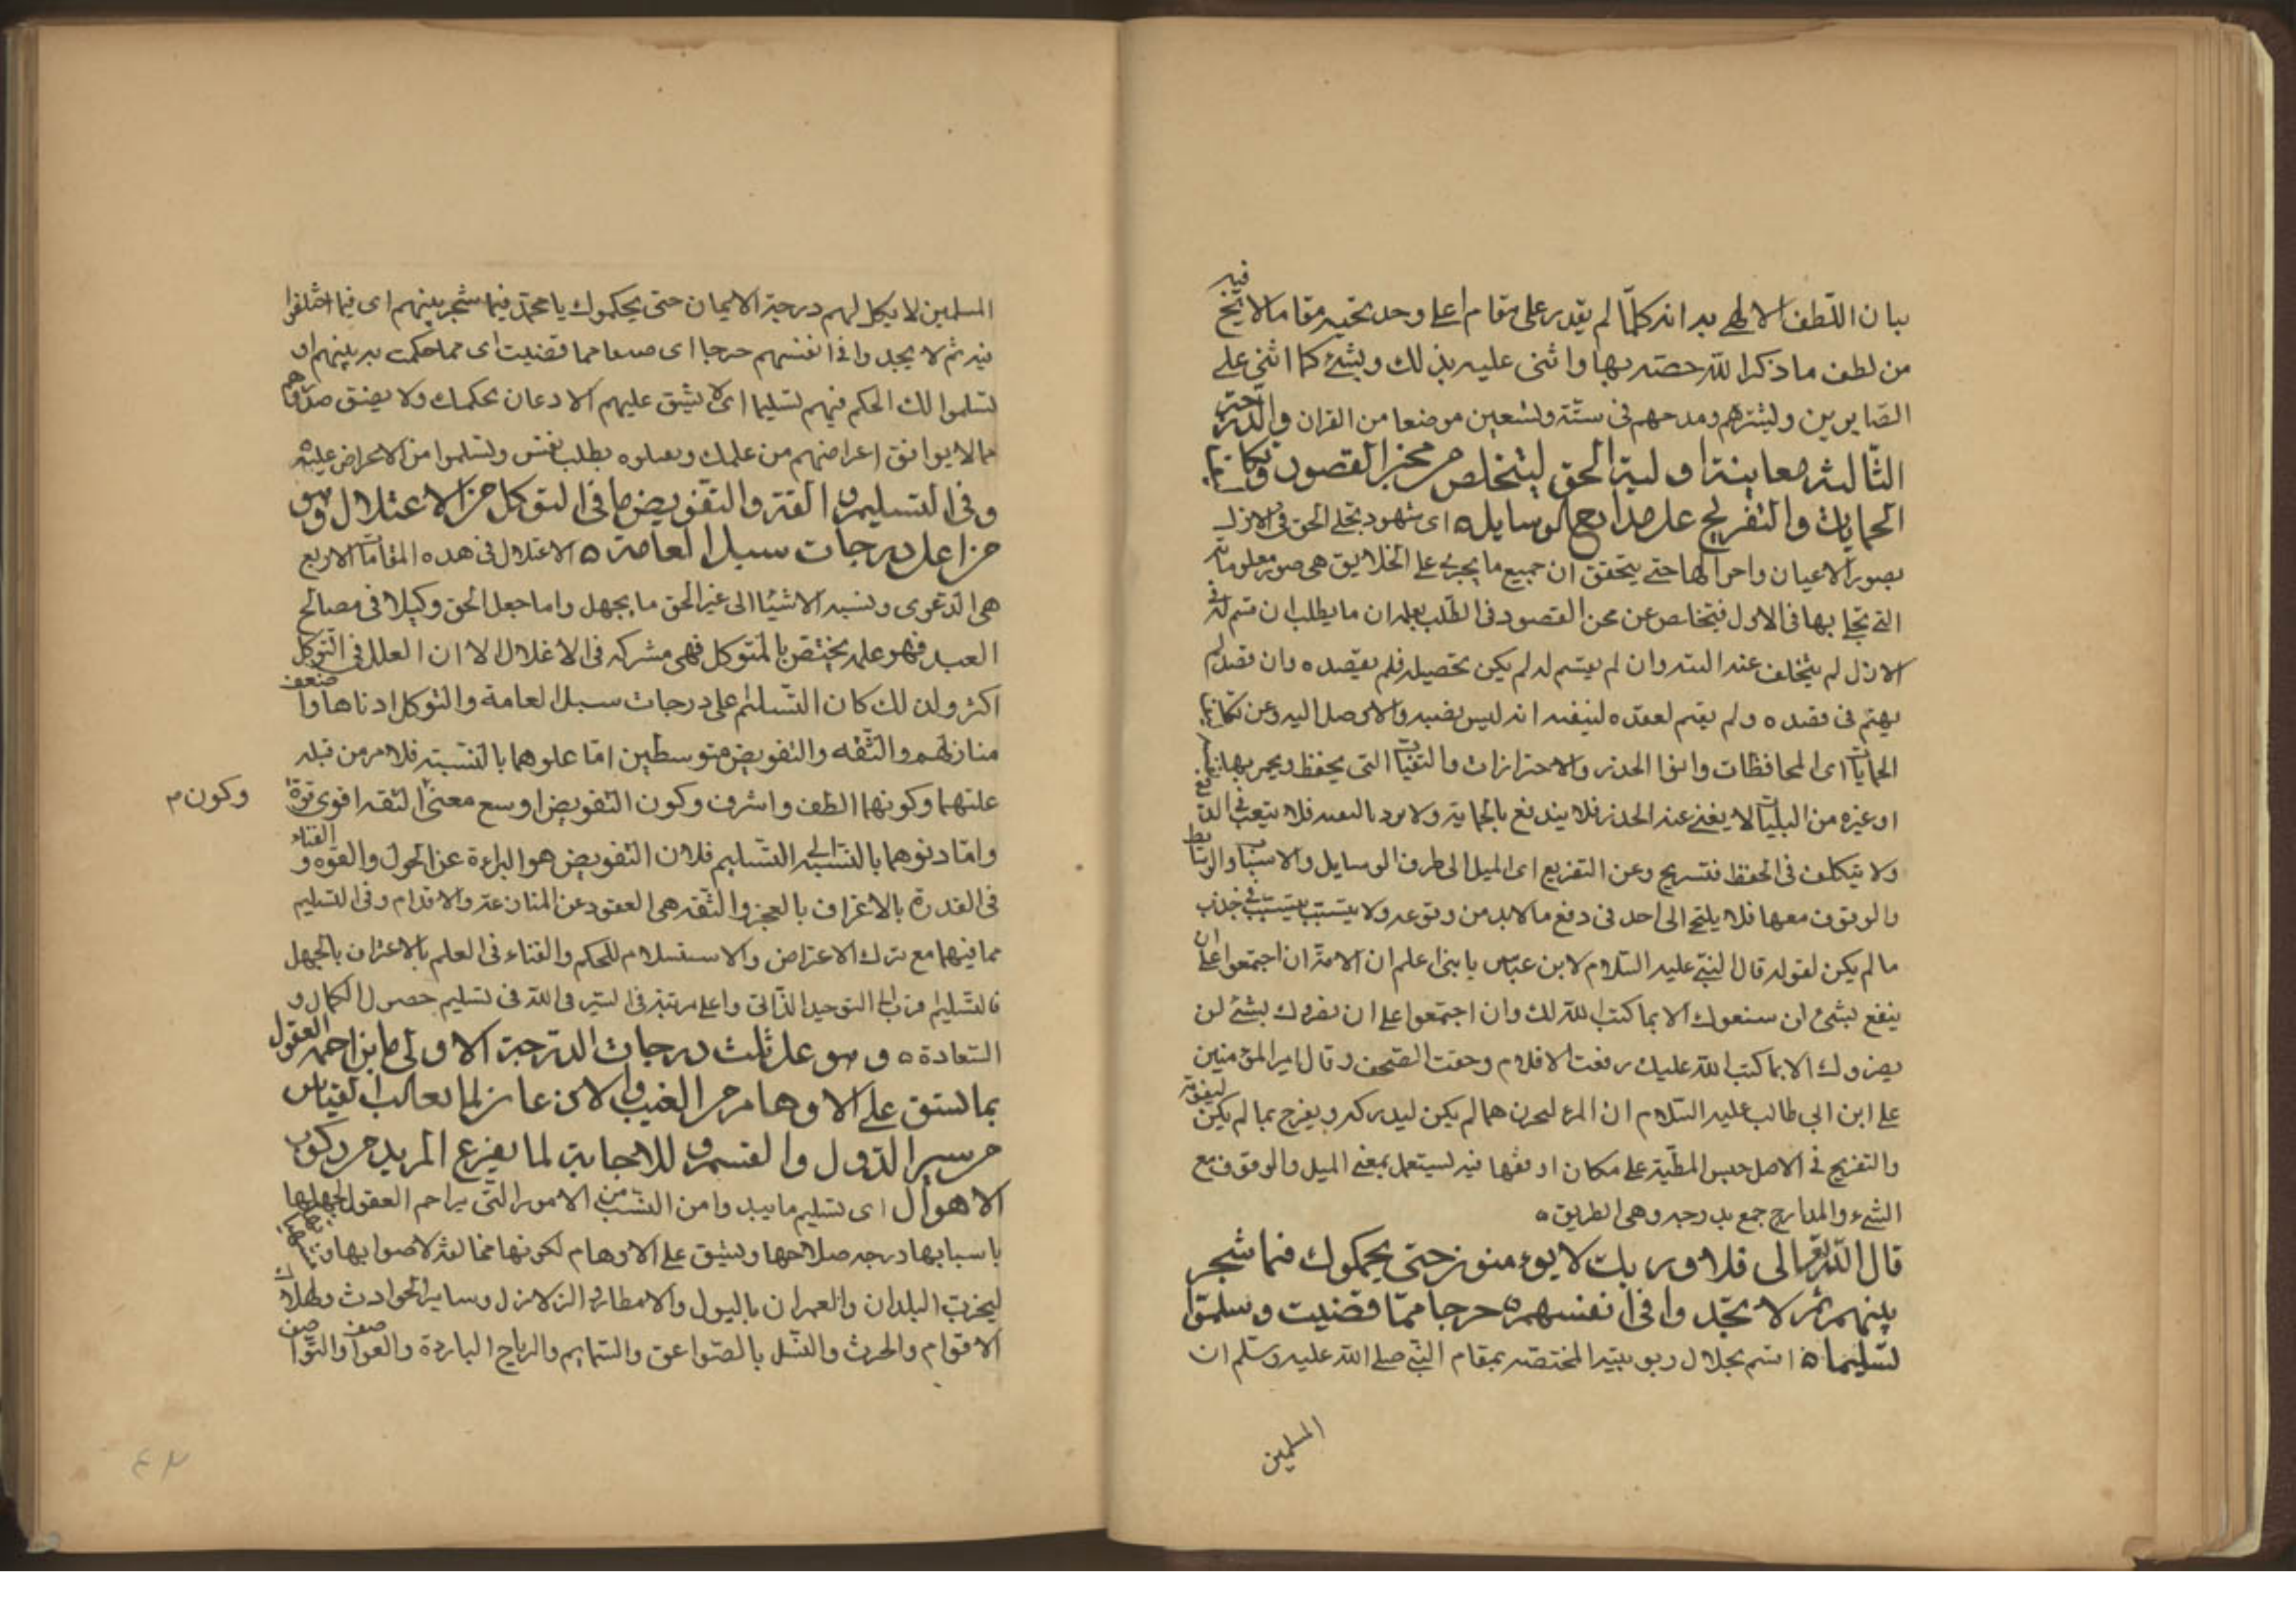 فيه
بيان اللّطف الالهي به انه كلّما لم يقدر على مقام اعلى وجد بخيبه مقاما لا يخ
من لطف ما ذكر الله خصّه بها واثنى عليه بذلك وبشّره كما اثنى على
الصّابرين وبشّرهم ومدحهم في ستّة وتسعين موضعا من القران والدّرجة
الثّالثة معاينة اولية الحق ليتخلص من محن القصود وتكاليف
الحمايات والتعريج على مدارج الوسايل ه اى شهود تجلي الحق في الازل
بصور الاعيان واحوالها حتى يتحقق ان جميع ما يجري على الخلايق هي صور معلوماته
التي تجلى بها في الازل فيتخلص عن محن القصود في الطلب بعلمه ان ما يطلب ان قسم له في
الازل لم يتخلف عنه البتة وان لم يقسم له لم يكن تحصيله فلم يقصده وان قصد لم
يهتم في قصده ولم يغتم لفقده ليقينه انه ليس نصيبه والا وصل اليه وعن تكاليف
الحمايات اى المحافظات وانواع الحذر والاحترازات والتقيات التي يحفظ
او غيره من البليات لا يغني عنه الحذر فلا يندفع بالحماية ولا يرد فلا يتعب في الدفع
ولا يتكلف في الحفظ فتستريح وعن التعريج اى الميل الى طرف الوسايل والاسباب والوسايط
والوقوف معها فلا يلتجي الى احد في دفع ما لا بد من وقوعه ولا يتسبب بسبب في جذب
ما لم يكن لقوله قال النبي عليه السّلام لابن عبّاس يا بني اعلم ان الامّة ان اجتمعوا على ان
ينفع بشئ لن ينفعوك الا بما كتب الله لك وان اجتمعوا على ان يضروك بشئ لن
يضروك الا بما كتب الله عليك رفعت الاقلام وجفت الصّحف وقال امير المؤمنين
على ابن ابي طالب عليه السّلام ان المرء ليحزن هما لم يكن ليدركه ويفرح بما لم يكن ليفوته
والتعريج في الاصل حبس المطيّة على مكان اوقفها فيه ليستعمل بمعنى الميل والوقوف مع
الشيء والمدارج جمع مدرجة وهي الطريق ه
قال الله تعالى فلا وربك لا يؤمنون حتى يحكموك فيما شجر
بينهم ثم لا يجدوا في انفسهم حرجا ممّا قضيت ويسلموا
تسليما ه اقسم بجلال ربوبيته المختصّة بمقام النّبي صلى الله عليه وسلّم ان
المسلمين
المسلمين لا يكمل لهم درجة الايمان حتى يحكموك يا محمّد فيما شجر بينهم اى فيما اختلفوا
فيه ثم لا يجدوا في انفسهم حرجا اى ضيقا مما قضيت اى مما حكمت به بينهم او
يسلموا لك الحكم فيهم تسليما اى لا يشق عليهم الاذعان بحكمك ولا يضيق صدورهم
مما لا يوافق اغراضهم من علمك بطلب نفس ويسلموا من الاعراض عليه
وفي التسليم والثقة والتفويض ما في التوكل من الاعتلال وهو
من اعلى درجات سبل العامة ه الاعتلال في هذه المقامات الاربع
هي الدّعوى ونسبة الاشياء الى غير الحق ما بجهل واما جعل الحق وكيلا في مصالح
العبد فهو علة يختص بالمتوكل فهي مشركه في الاعلال الا ان العلل في التوكل
اكثر ولذلك كان التّسليم على درجات سبل العامة والتوكل ادناها واضعف
منازلهم والثّقه والتفويض متوسطين امّا علوهما بالنّسبة فلامر من قبله
علتهما وكونهما الطف واشرف وكون التفويض اوسع معنى الثقة اقوى قوة
وكون م
وامّا دنوهما بالنسبة الى التّسليم فلان التفويض هو البراءة عن الحول والقوه والفناء
في القدرة بالاعتراف بالعجز والثّقة هي العقود عن المنازعة والاقدام وفي التسليم
مما فيهما مع ترك الاعتراض والاستسلام للحكم والفناء في العلم بالاعتراف بالجهل
فالتّسليم قرب الى التوحيد الذّاتي واعلى مرتبة في السّير في الله في تسليم حصول الكمال و
السّعادة ه وهو على ثلث درجات الدرجة الاولى ما يزاحم العقول
بما يشق على الاوهام من الغيب والاذعان لما يغالب القياس
من سير الدّول والقسم والاجابة لما يفزع المريد من ركوب
الاهوال اى تسليم ما يبدوا من النسب من الامور الّتى يزاحم العقول لجهلها
باسبابها درجة صلاحها ويشق على الاوهام لكونها مخالفة لاصوابها
ليخرب البلدان والعمران بالسيول والامطار والزلازل وساير الحوادث وهلاك
الاقوام والحرث والنّسل بالصّواعق والسّمايم والرياح الباردة والعواصف والقواصف